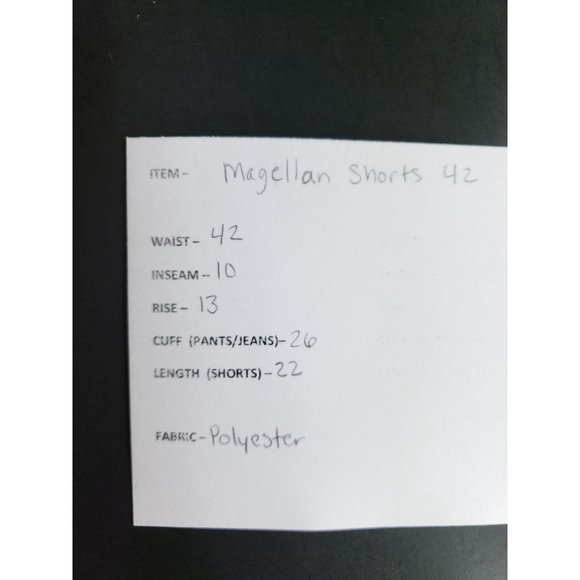 ITEM- Magellan Shorts 42
WAIST- 42
INSEAM- 10
RISE- 13
CUFF (PANTS/JEANS)- 26
LENGTH (SHORTS)- 22
FABRIC- Polyester